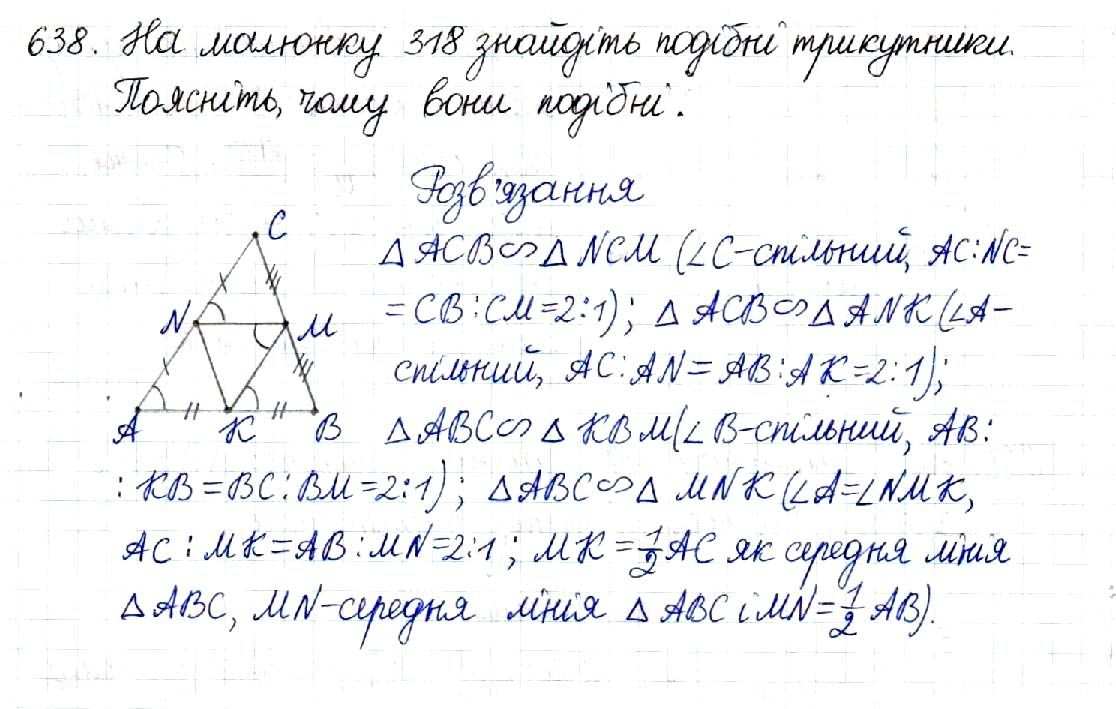 638. На малюнку 318 знайдіть подібні трикутники.
Поясніть, чому вони подібні.
Розв'язання
C
N
M
A
K
B
△ ACB ∽ △ NCM (∠C-спільний, AC:NC=
= CB:CM=2:1); △ ACB ∽ △ ANK (∠A-
спільний, AC:AN=AB:AK=2:1);
△ABC ∽ △ KBM (∠B-спільний, AB:
:KB=BC:BM=2:1); △ABC ∽ △ MNK (∠A=∠NMK,
AC:MK=AB:MN=2:1; MK=1/2 AC як середня лінія
△ ABC, MN-середня лінія △ ABC і MN=1/2 AB).